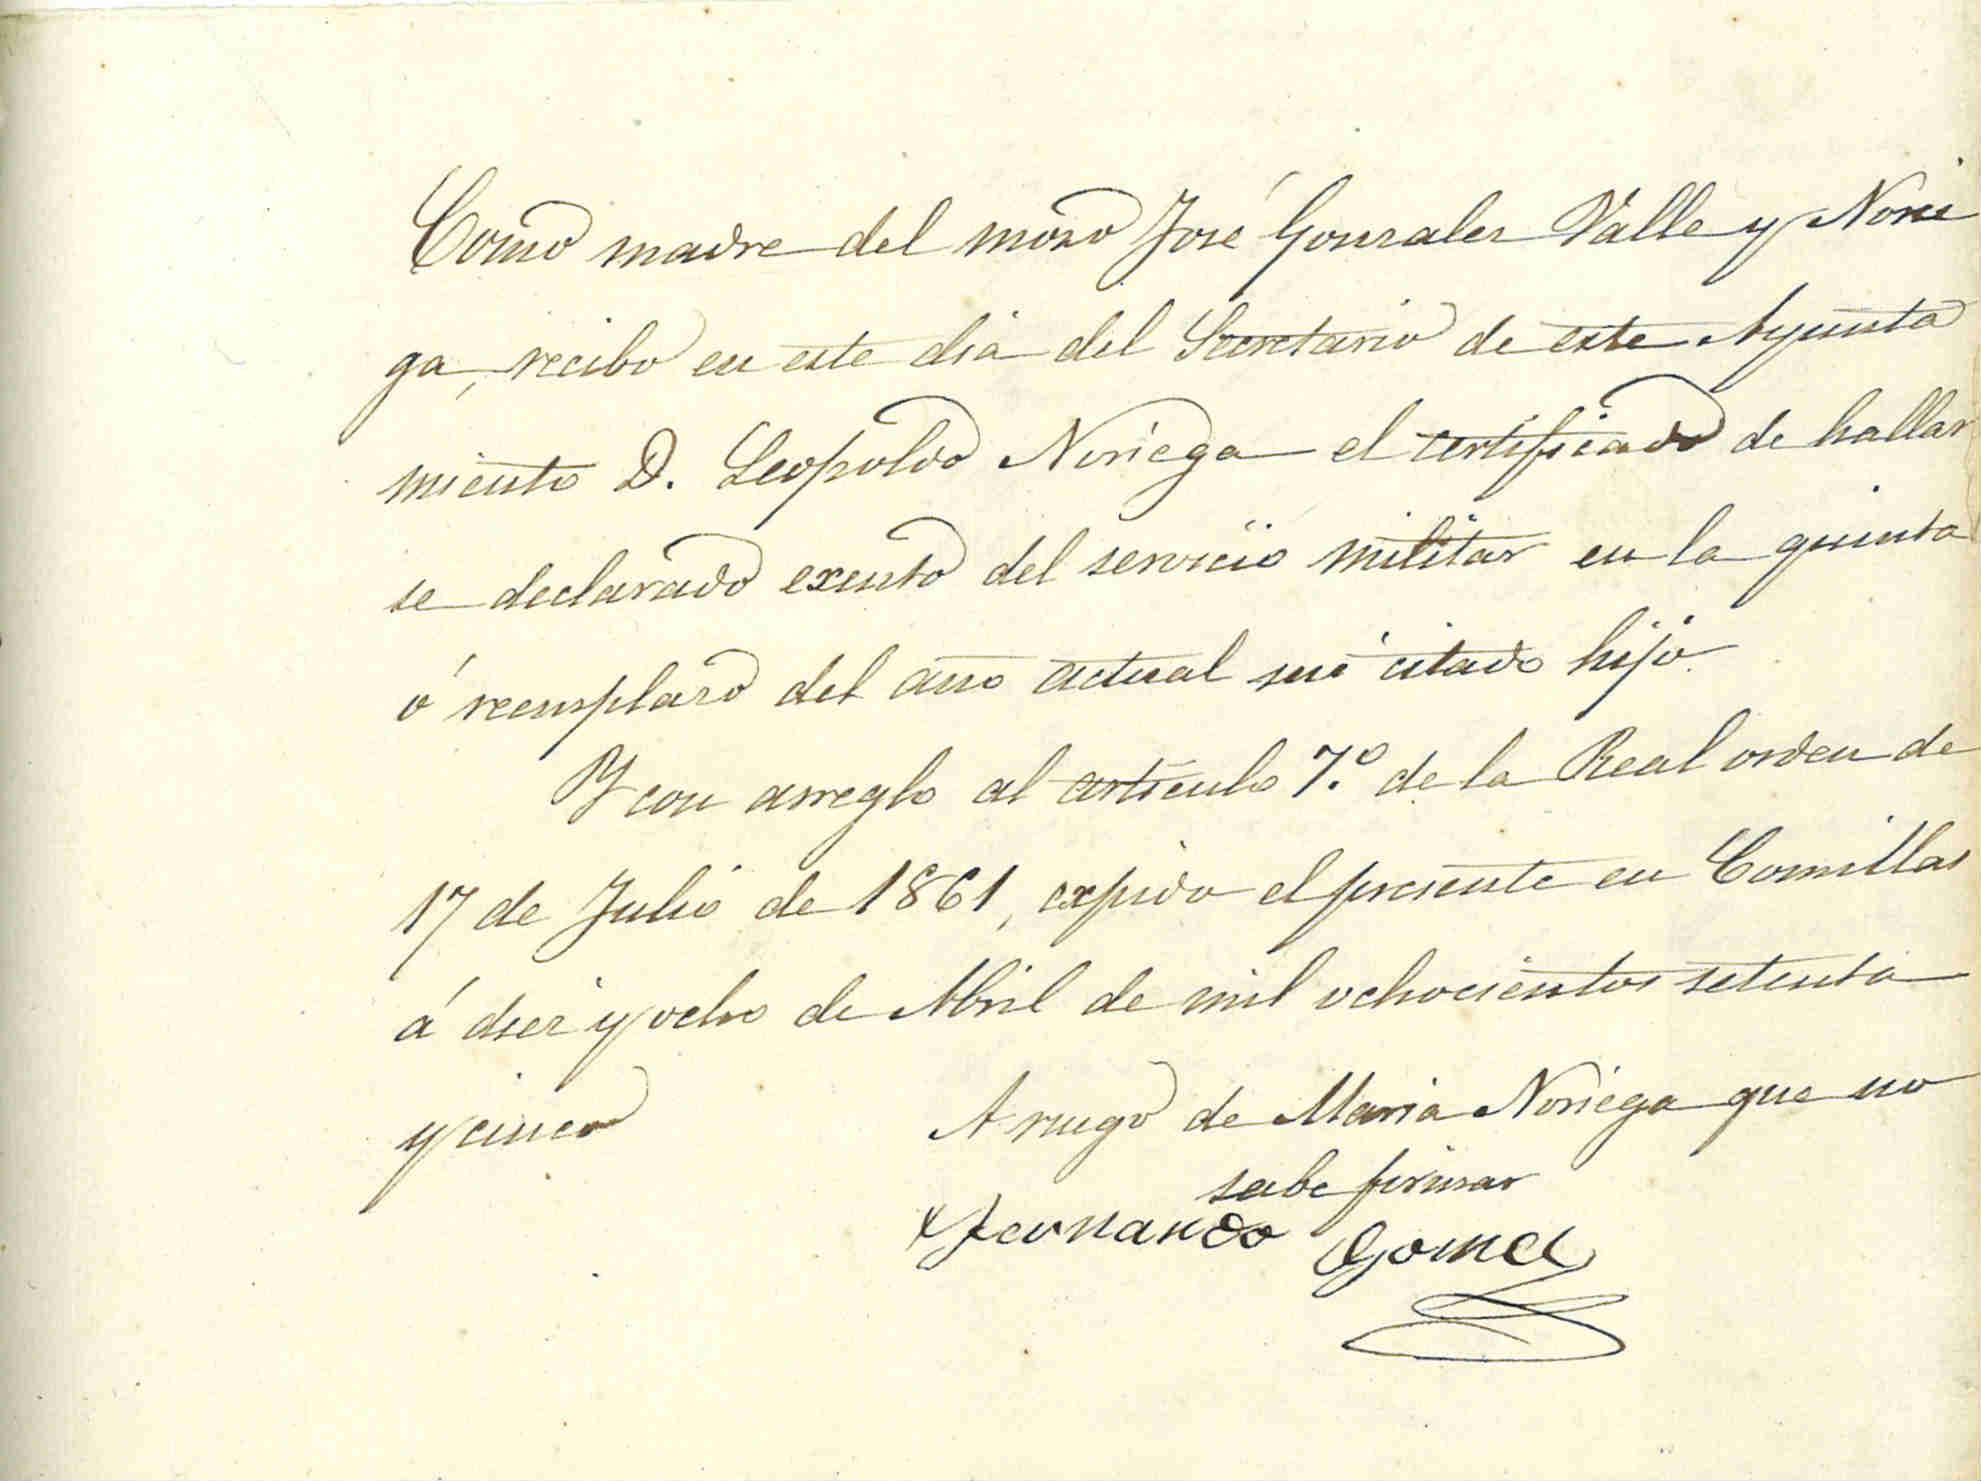 Como madre del mozo José Gonzalez Valle y Norie
ga, recibo en este dia del Secretario de este Ayunta
miento D. Leopoldo Noriega el certificado de hallar
se declarado exento del servicio militar en la quinta
ó reemplazo del año actual mi citado hijo.
Y con arreglo al articulo 7.º de la Real orden de
17 de Julio de 1861, expido el presente en Comillas
á diez y ocho de Abril de mil ochocientos setenta
y cinco
A ruego de Maria Noriega que no
sabe firmar
Fernando Gomez